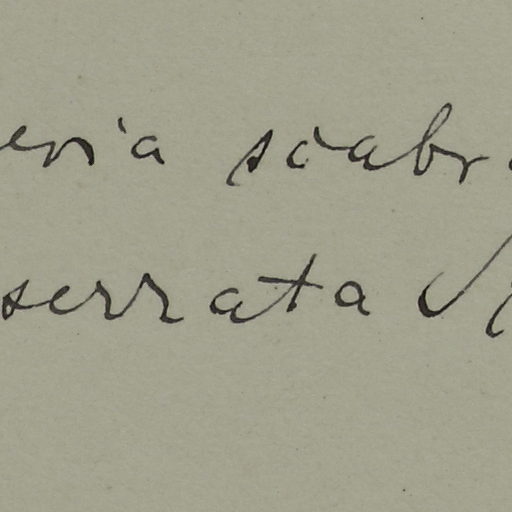 eria scabr
serrata